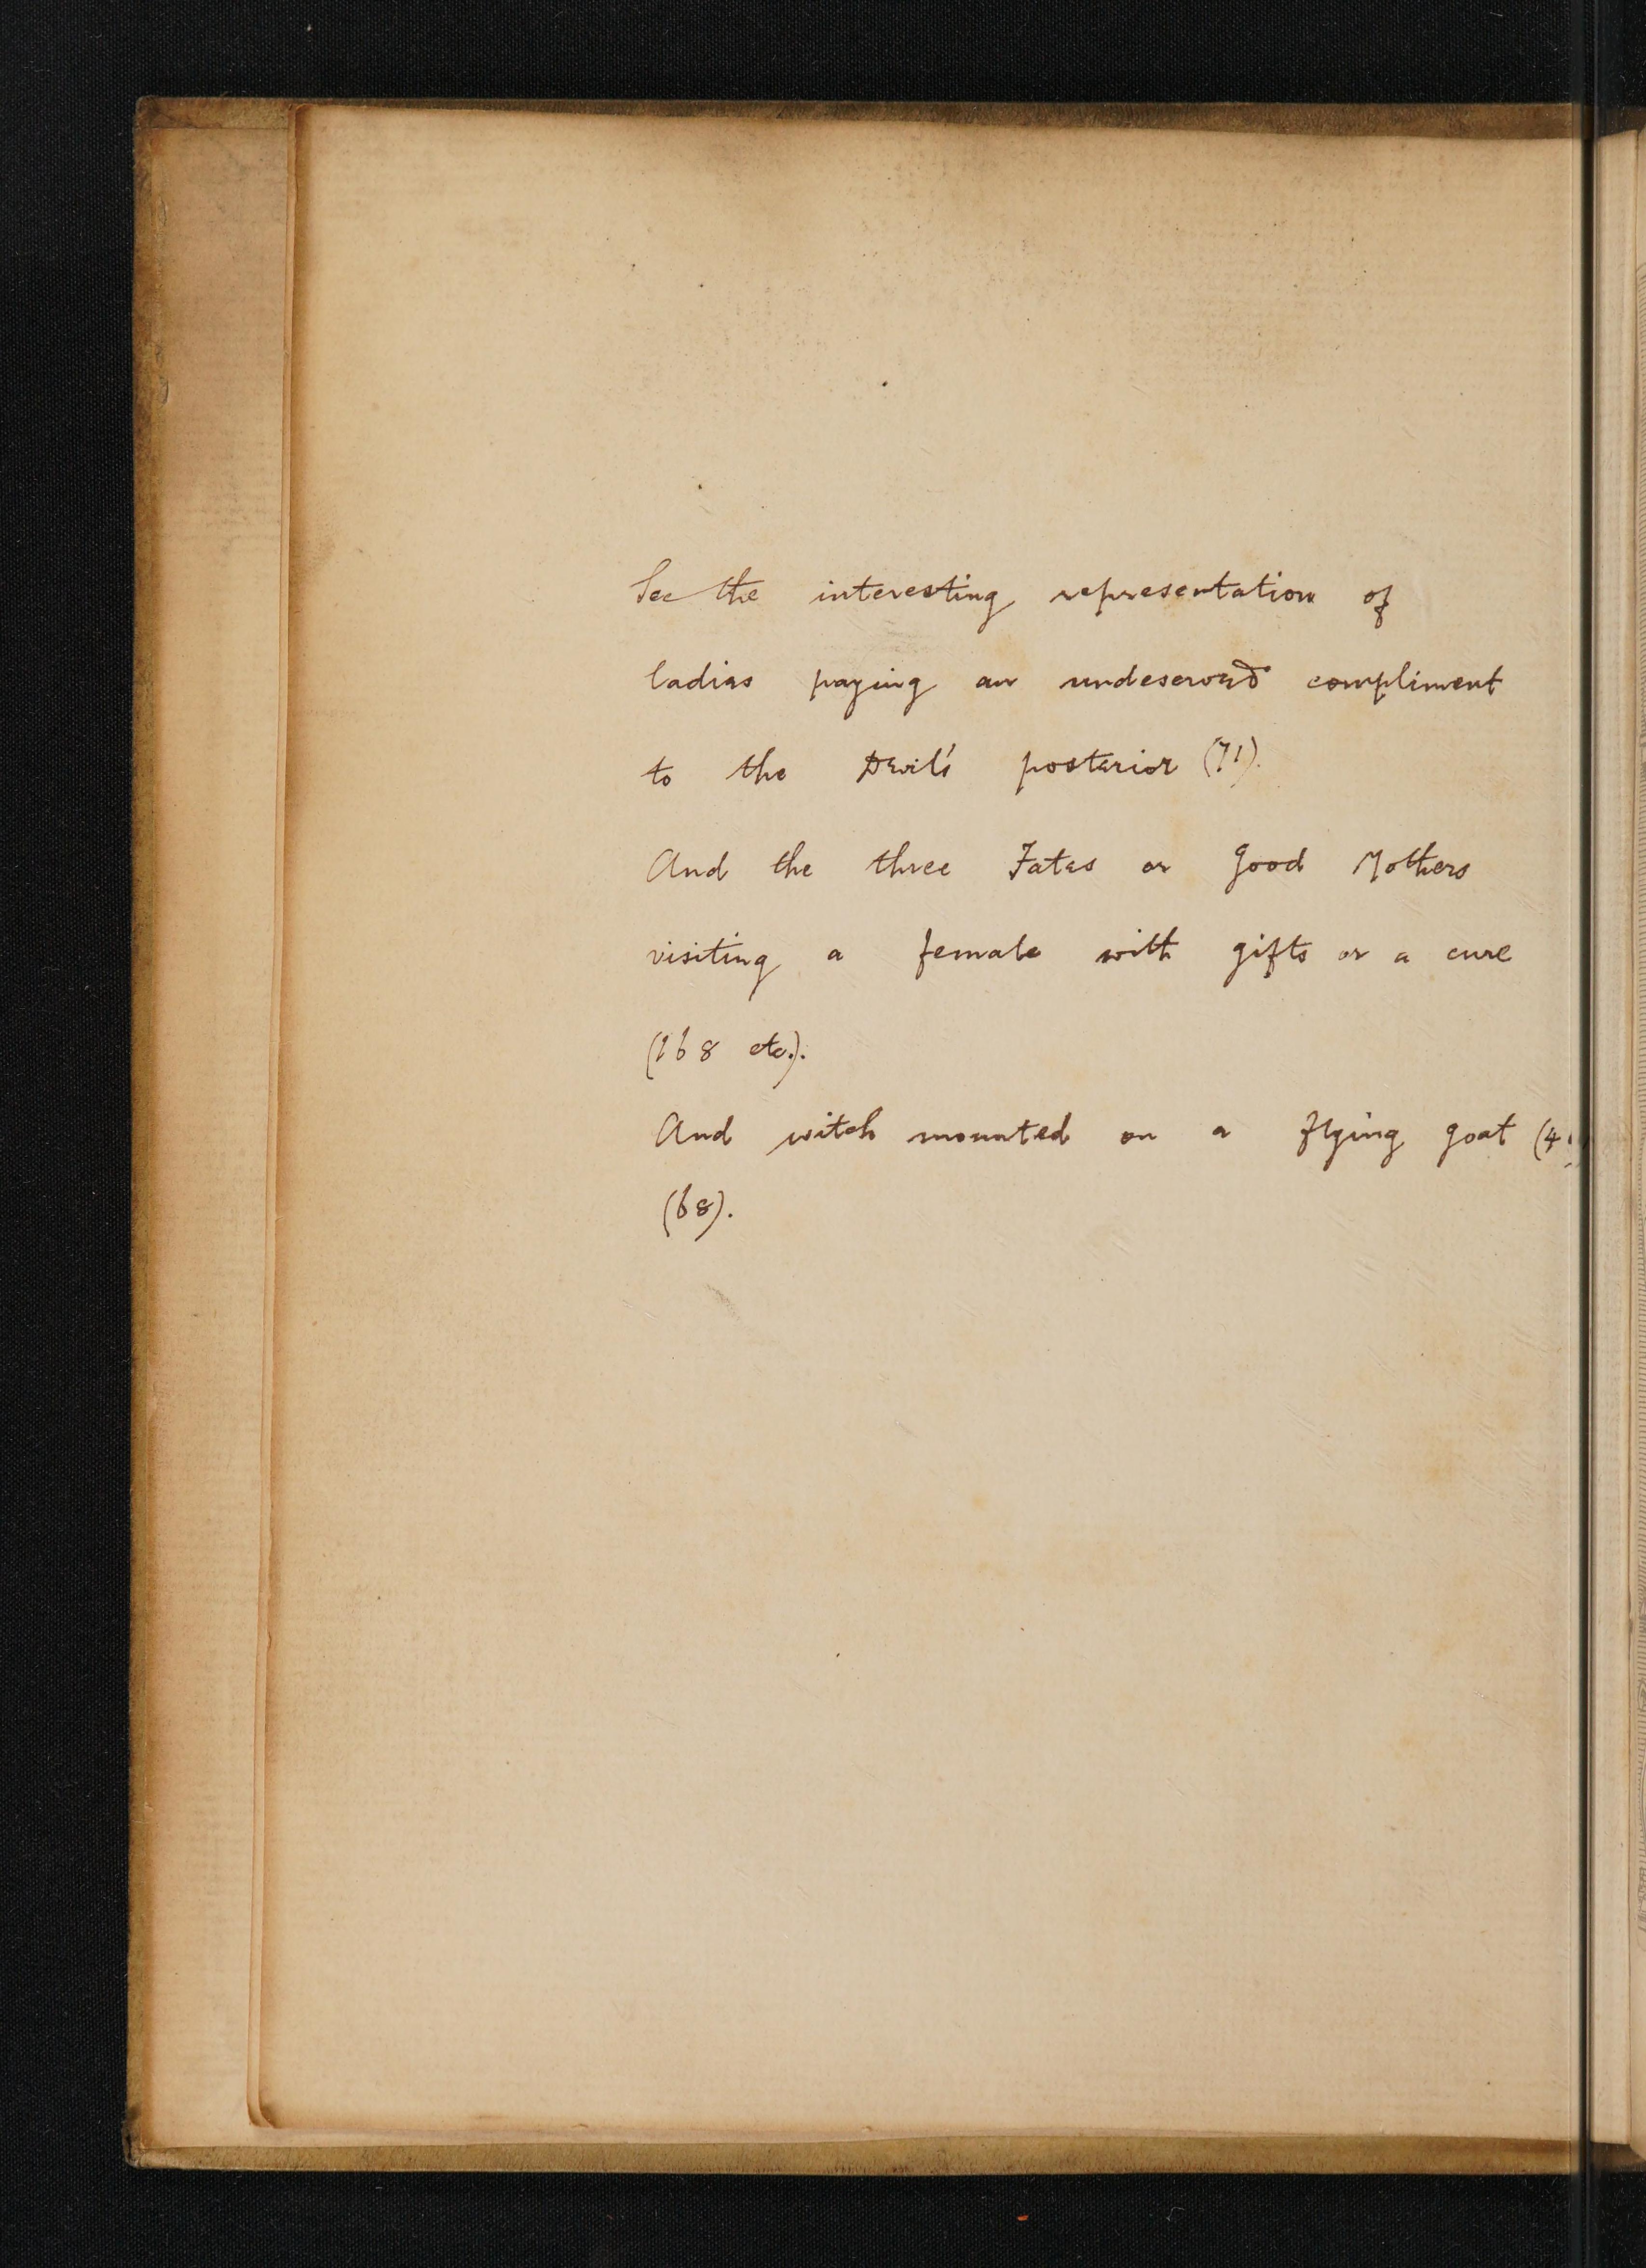 See the interesting representation of
ladies paying an undeserved compliment
to the Devil's posterior (71).
And the three Fates or Good Mothers
visiting a female with gifts or a cure
(168 etc.).
And witch mounted on a flying goat
(68).